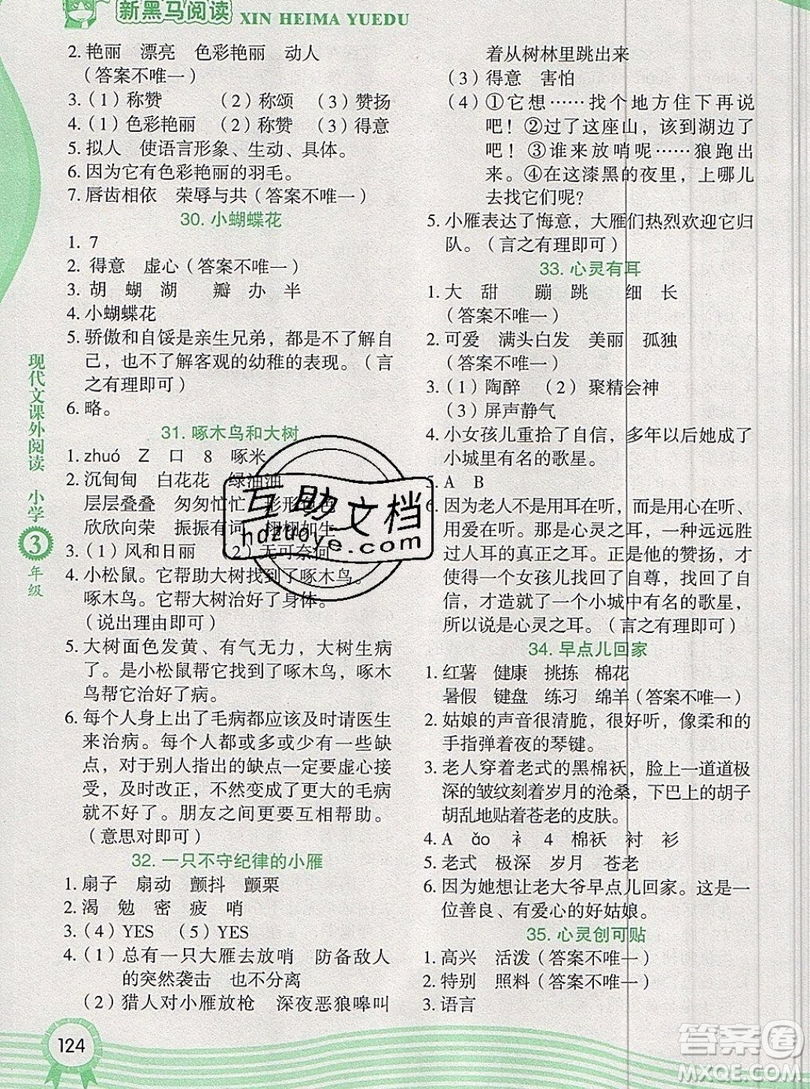 新黑马阅读
XIN HEIMA YUEDU
2. 艳丽 漂亮 色彩艳丽 动人
（答案不唯一）
3.（1）称赞 （2）称颂 （3）赞扬
4.（1）色彩艳丽 （2）称赞 （3）得意
5. 拟人 使语言形象、生动、具体。
6. 因为它有色彩艳丽的羽毛。
7. 唇齿相依 荣辱与共（答案不唯一）
30. 小蝴蝶花
1. 7
2. 得意 虚心（答案不唯一）
3. 胡 蝴 湖 瓣 办 半
4. 小蝴蝶花
5. 骄傲和自馁是亲生兄弟，都是不了解自
己，也不了解客观的幼稚的表现。（言
之有理即可）
6. 略。
31. 啄木鸟和大树
1. zhuó Z 口 8 啄米
2. 沉甸甸 白花花 绿油油
层层叠叠 匆匆忙忙
欣欣向荣 振振有词 栩栩如生
3.（1）风和日丽 （2）无可奈何
4. 小松鼠。它帮助大树找到了啄木鸟。
啄木鸟。它帮大树治好了身体。
（说出理由即可）
5. 大树面色发黄、有气无力，大树生病
了。是小松鼠帮它找到了啄木鸟，啄
木鸟帮它治好了病。
6. 每个人身上出了毛病都应该及时请医生
来治，每个人都或多或少有一些缺
点，对于别人指出的缺点一定要虚心接
受，及时改正，不然小缺点就会变成大
毛病，就不好了。朋友之间要互相帮助。
（意思对即可）
32. 一只不守纪律的小雁
1. 扇子 扇动 颤抖 颤栗
2. 渴 勉 密 疲 哨
3.（4）YES （5）YES
4.（1）总有一只大雁去放哨 防备敌人
的突然袭击 也不分离
（2）猎人对小雁放枪 深夜恶狼嗥叫
着从树林里跳出来
（3）得意 害怕
（4）①它想……找个地方住下再说
吧！②过了这座山，该到湖边了
吧！③谁来放哨呢……狼跑出
来。④在这漆黑的夜里，上哪儿
去找它们呢？
5. 小雁表达了悔意，大雁们热烈欢迎它归
队。（言之有理即可）
33. 心灵有耳
1. 大 甜 蹦 跳 细 长
（答案不唯一）
2. 可爱 满头白发 美丽 孤独
（答案不唯一）
3.（1）陶醉 （2）聚精会神
（3）屏声静气
4. 小女孩儿重拾了自信，多年以后她成了
小城里有名的歌星。
5. A B
6. 因为老人不是用耳在听，而是用心在
听，用爱在听。那是心灵之耳，一种远
远胜过人耳的真正之耳。正是他的赞扬，
给了一个女孩儿找回了自尊，找回了自
信的机会，成就了一个小城中有名的歌星，
所以说是心灵之耳。（言之有理即可）
34. 早点儿回家
1. 红薯 健康 挑拣 棉花
暑假 键盘 练习 绵羊（答案不唯一）
2. 姑娘的声音很清脆，很好听，像柔和的
手指弹着夜的琴键。
3. 老人穿着老式的黑棉袄，脸上一道道极
深的皱纹刻着岁月的沧桑，下巴上的胡子
胡乱地贴着苍老的皮肤。
4. A ǎo 衤 4 棉袄 衬 衫
5. 老式 极深 岁月 苍老
6. 因为她想让老大爷早点儿回家。这是一
位善良、有爱心的好姑娘。
35. 心灵创可贴
1. 高兴 活泼（答案不唯一）
2. 特别 照料（答案不唯一）
3. 语言
现代文课外阅读 小学
3
年级
124
互助文档
hdzuoye.com
答案圈
MXQE.COM